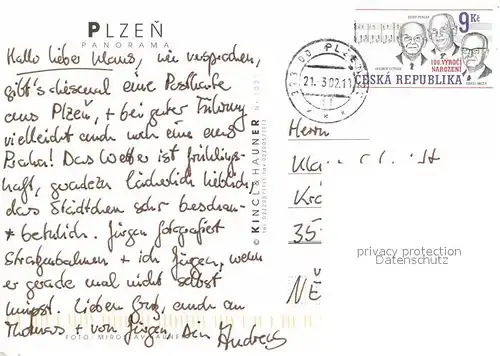 PLZEŇ
PANORAMA
Hallo lieber Klaus, wie versprochen,
gibt's diesmal eine Postkarte
aus Plzeň, + bei guter Führung
vielleicht auch noch eine aus
Praha! Das Wetter ist frühlings-
haft, geradezu lächerlich lieblich,
das Städtchen sehr beschau-
* betulich. Jürgen fotografiert
Straßenbahnen + ich Jürgen, wenn
er gerade mal nicht selbst
knipst. Lieben Gruß, auch an
Thomas + von Jürgen, Dein Andreas
FOTO: MIROSLAV
© KINCL & HAUNER
PLZEŇ
21.3.02.11
9 Kč
100. VÝROČÍ
NAROZENÍ
ČESKÁ REPUBLIKA
Herrn
Kla
Kr
35
NĚ
privacy protection
Datenschutz